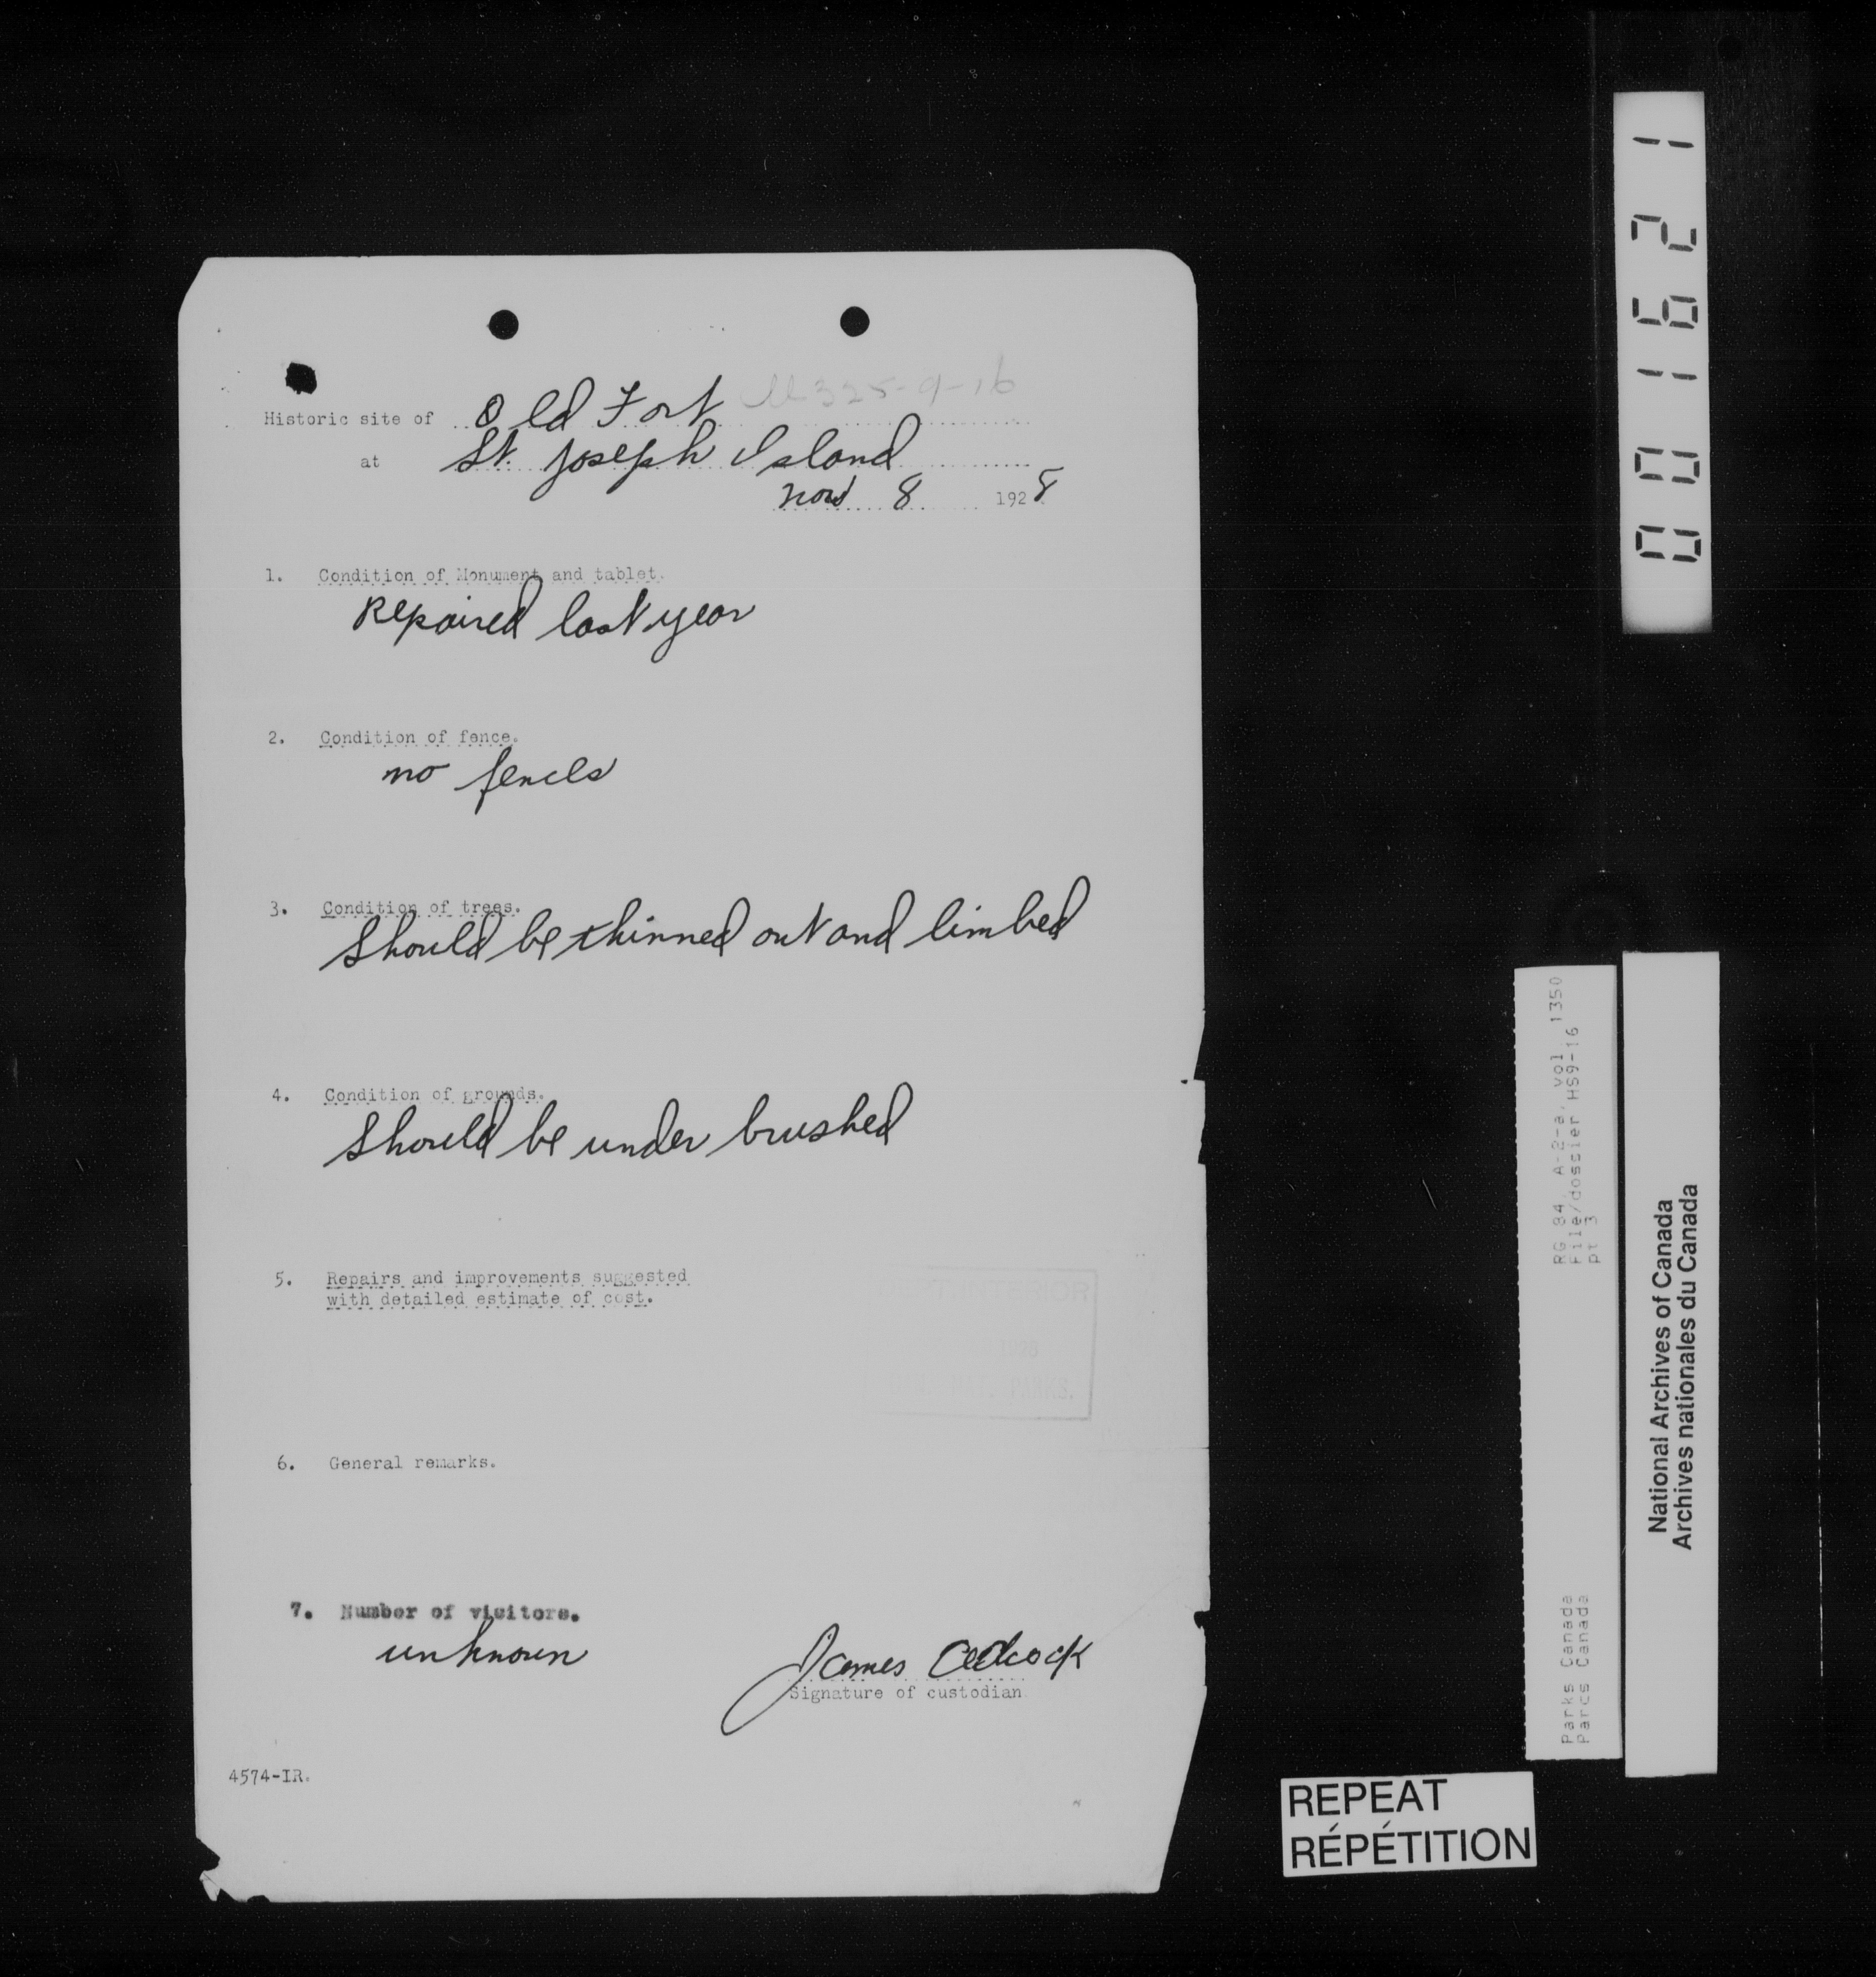 Historic site of Old Fort
at St. Joseph Island
Nov 8 1928
1. Condition of Monument and tablet.
Repaired last year
2. Condition of fence.
no fences
3. Condition of trees.
Should be thinned out and limbed
4. Condition of grounds.
Should be under brushed
5. Repairs and improvements suggested
with detailed estimate of cost.
6. General remarks.
7. Number of visitors.
unknown
James Adcock
Signature of custodian
4574-IR.
001621
RG 84, A-2-a, vol. 1350
File/dossier HS9-16
pt 3
Parks Canada
Parcs Canada
National Archives of Canada
Archives nationales du Canada
REPEAT
RÉPÉTITION